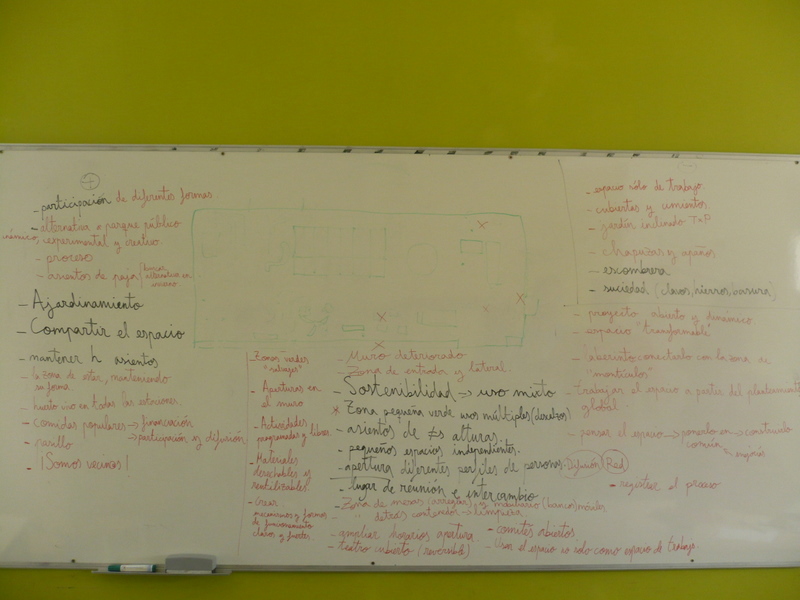 +
- participación de diferentes formas
- alternativa a parque público
experimental y creativo
- proceso
- asientos de paja
- Ajardinamiento
- Compartir el espacio
- mantener h asientos
- la zona de estar, manteniendo
su forma
- huerto vivo en todas las estaciones
- comidas populares → financiación
→ participación y difusión
- ¡Somos vecinos!
Zonas verdes
"salvajes"
- Aperturas en
el muro
- Actividades
programadas y libres.
- Materiales
desechables y
reutilizables.
- Crear
mecanismos y formas
de funcionamiento
claros y fuertes.
- Muro deteriorado
- Zona de entrada y lateral.
- Sostenibilidad → uso mixto
x Zona pequeña verde usos múltiples (descalzos)
- asientos de ≠s alturas.
- pequeños espacios independientes.
- apertura diferentes perfiles de personas. Difusión Red
- lugar de reunión e intercambio
- Zona de mesas (arreglar) y mobiliario (banco) móviles
- " detrás contenedor → limpieza
- ampliar horarios apertura
- comités abiertos
- teatro cubierto (reversible)
- Usar el espacio no solo como espacio de trabajo
- espacio sólo de trabajo
- cubiertas y cimientos
- jardín inclinado TxP
- chapuzas y apaños
- escombrera
- suciedad (clavos, hierros, basura)
- proyecto abierto y dinámico
- espacio "transformable"
- abrirlo conectarlo con la zona de
"montículos"
- trabajar el espacio a partir del planteamiento
global
- pensar el espacio → ponerlo en común → construirlo
- registrar el proceso